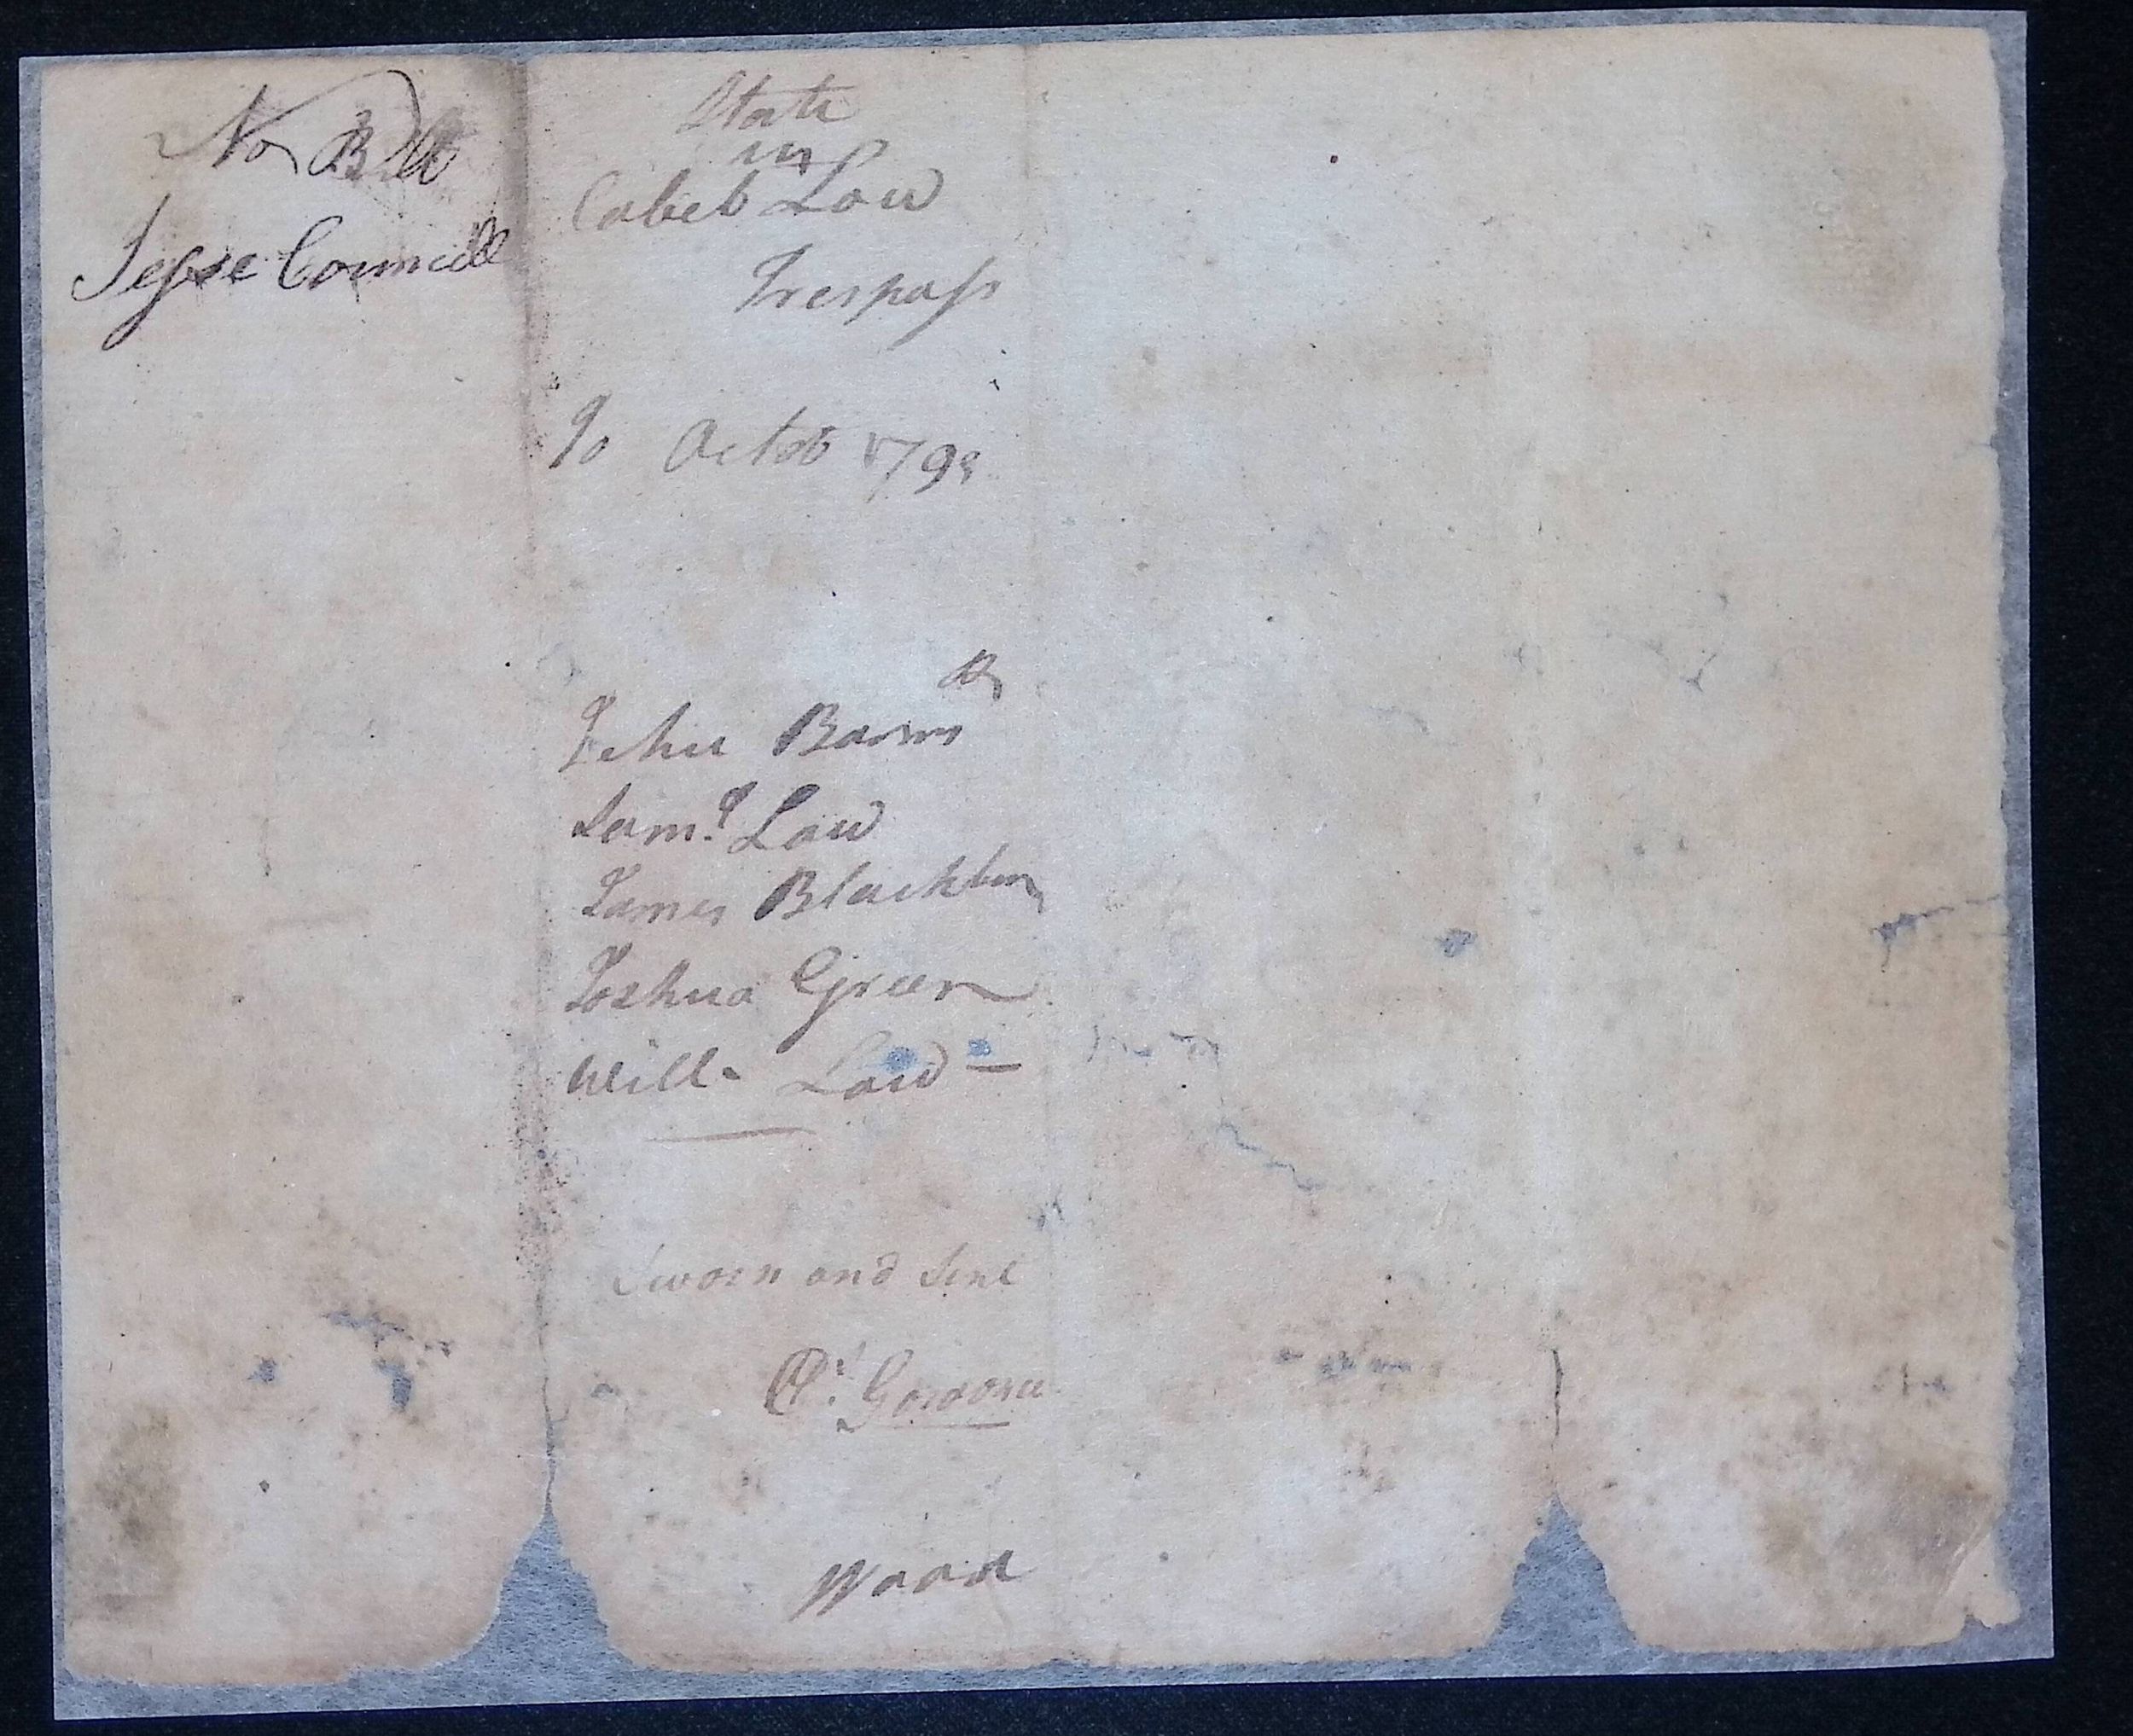 No Bill
Jesse Councill
State
vs
Caleb Low
Trespass
To Octob 1798
Jehu Barns
Saml. Low
James Blackburn
Joshua Green
Will. Low —
Sworn and Sent
Ct. Gordon
Wood